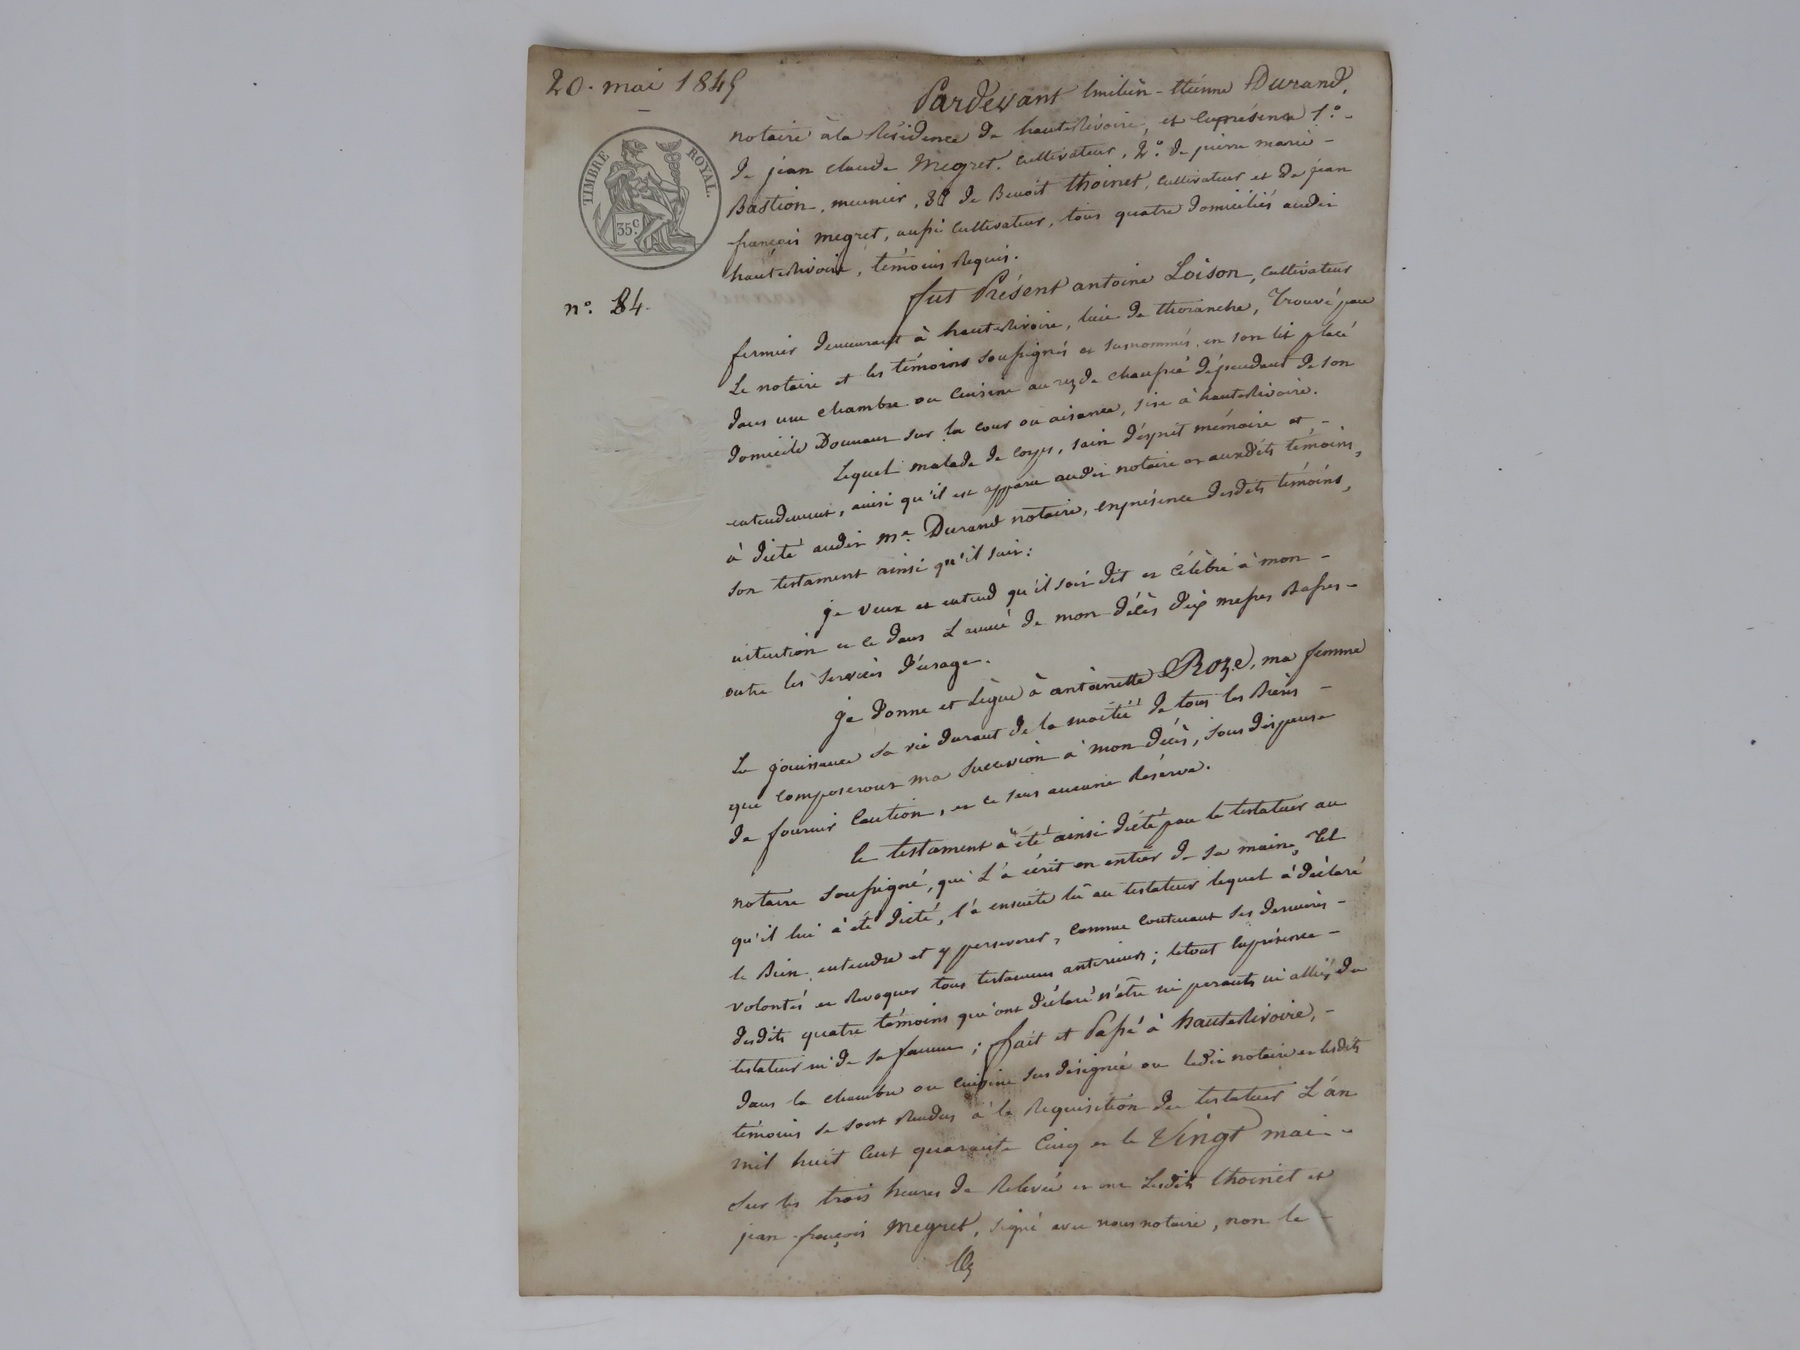 20. mai 1845
Pardevant Emilien-Etienne Durand,
notaire à la Résidence de hauterivoire, et En présence 1.o
de jean claude Megret, cultivateur, 2.o de pierre marie
Bastion, meunier, 3.o de Benoit thoinet, cultivateur et de jean
françois megret, aussi cultivateur, tous quatre domiciliés audit
hauterivoire, témoins Requis.
TIMBRE ROYAL.
35c.
n.o 84.
fut Présent antoine Loison, cultivateur
fermier demeurant à hauterivoire, lieu de thoranche, Trouvé par
Le notaire et les témoins soussignés et susnommés, en son lit placé
dans une chambre ou Cuisine au rez de chaussée dépendant de son
domicile Donnant sur la cour ou aisance, sise à hauterivoire.
Lequel malade de corps, sain d'ésprit mémoire et,
entendement, ainsi qu'il est apparu audit notaire et auxdits témoins,
à dicté audit Me. Durand notaire, en présence desdits témoins,
son testament ainsi qu'il suit :
je veux et entend qu'il soit dit et célébré à mon
intention et ce dans L'année de mon décès dix messes Basses
outre les services d'usage.
je donne et Lègue à antoinette Roze, ma femme
La jouissance sa vie durant de la moitié de tous les Biens
que composeront ma succession à mon décès, sous dispense
de fournir Caution, et ce sans aucune Réserve.
Ce testament à été ainsi dicté par le testateur au
notaire soussigné, qui L'à écrit en entier de sa main, Tel
qu'il lui à été dicté, l'à ensuite lû au testateur lequel à déclaré
le Bien entendre et y perseverer, comme contenant ses dernières
volontés et Revoquer tous testamens anterieurs ; letout En présence
desdits quatre témoins qui ont déclaré n'être ni parents ni alliés du
testateur ni de sa femme ; fait et Passé à hauterivoire,
dans la chambre ou cuisine sus désignée ou ledit notaire et lesdits
témoins se sont Rendus à la Requisition du testateur L'an
mil huit Cent quarante Cinq et le Vingt mai
Sur les trois heures de Relevée et ont Lesdits thoinet et
jean françois Megret, signé avec nous notaire, non le